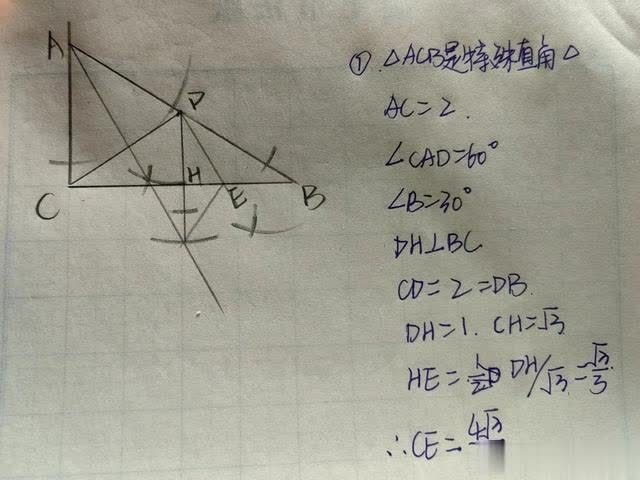 A
D
H
C
E
B
① △ACB是特殊直角△
AC=2.
∠CAD=60°
∠B=30°
DH⊥BC
CD=2=DB.
DH=1. CH=√3
HE= DH/√3=√3/3
∴CE=4√3